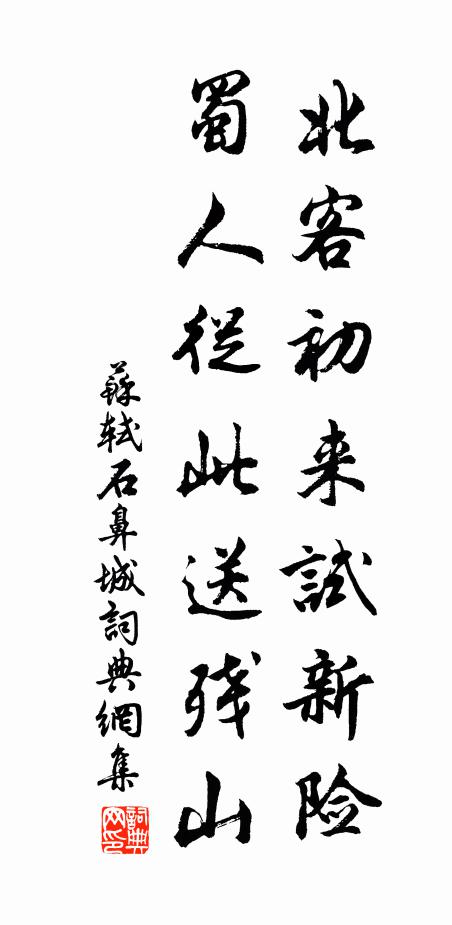 北客初来試新险
蜀人從此送残山
蘇軾石鼻城詞典網集
詞典
网印